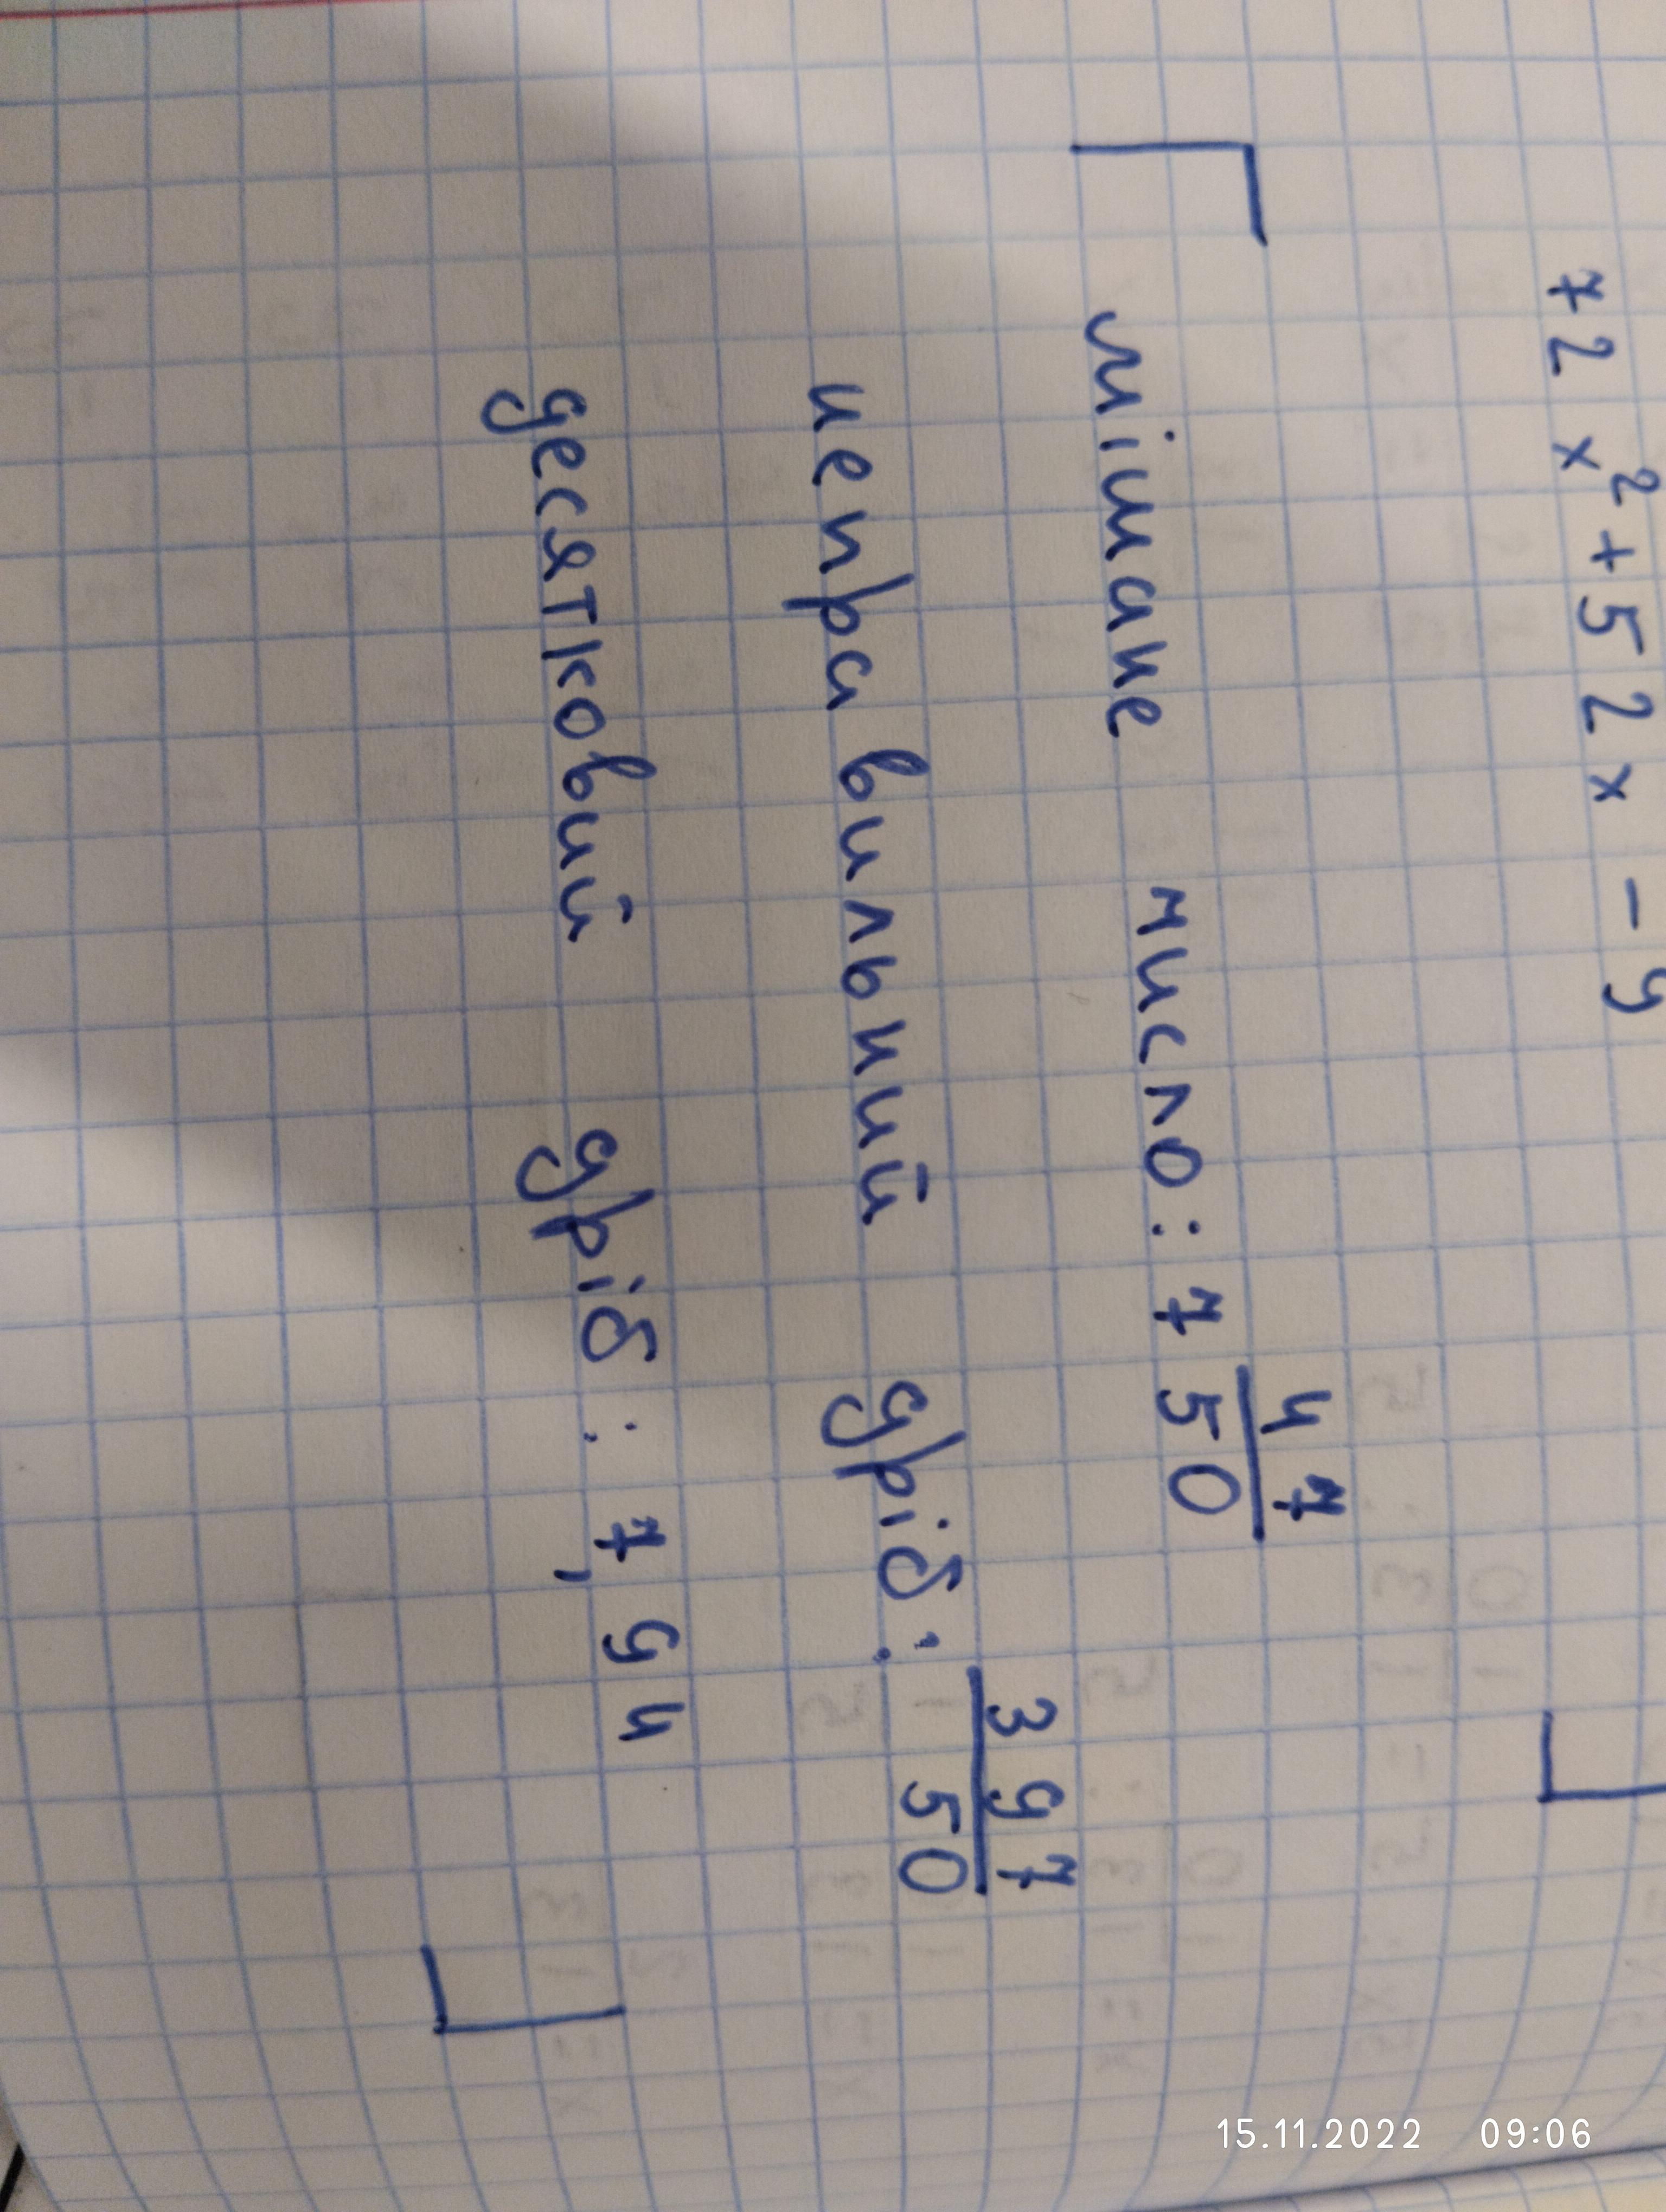 72x²+52x-9
мішане число: 7 47/50
неправильний дріб: 397/50
десятковий дріб: 7,94
15.11.2022 09:06